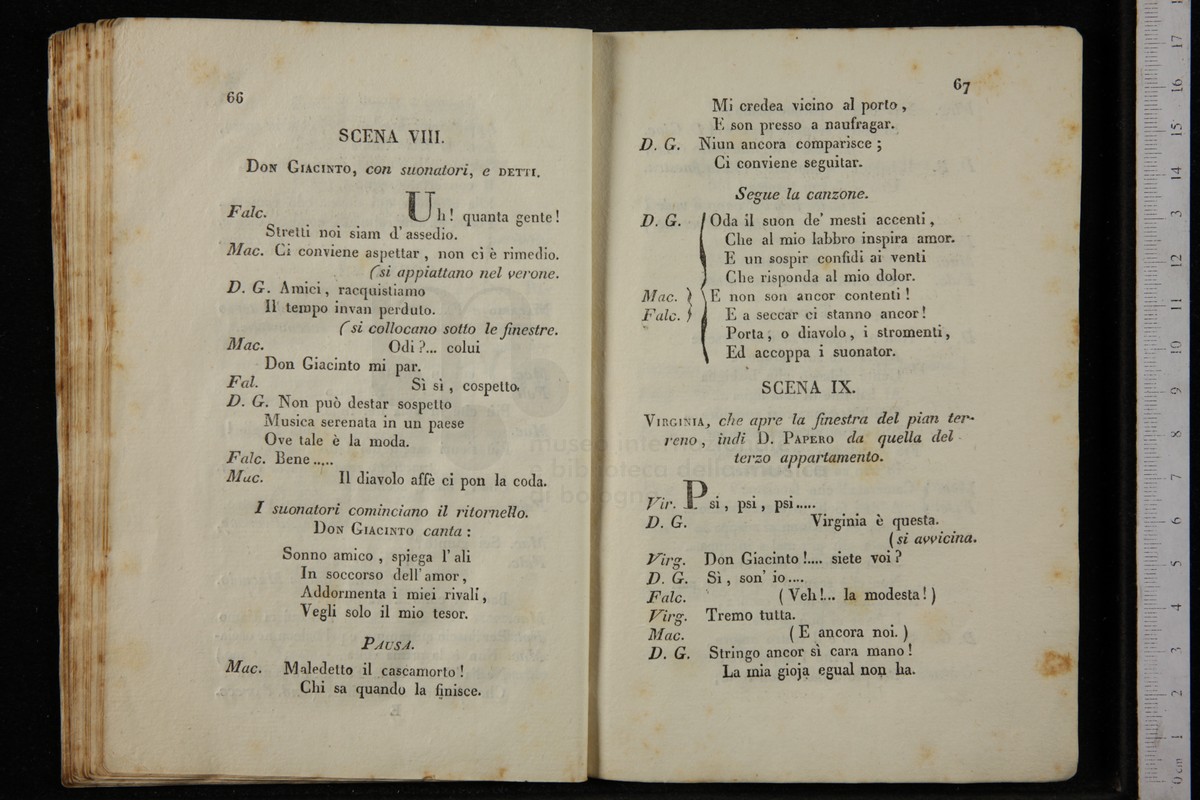 66
SCENA VIII.
DON GIACINTO, con suonatori, e DETTI.
Falc. Uh! quanta gente!
Stretti noi siam d'assedio.
Mac. Ci conviene aspettar, non ci è rimedio.
(si appiattano nel verone.
D. G. Amici, racquistiamo
Il tempo invan perduto.
(si collocano sotto le finestre.
Mac. Odi?... colui
Don Giacinto mi par.
Fal. Sì sì, cospetto.
D. G. Non può destar sospetto
Musica serenata in un paese
Ove tale è la moda.
Falc. Bene.....
Mac. Il diavolo affè ci pon la coda.
I suonatori cominciano il ritornello.
DON GIACINTO canta:
Sonno amico, spiega l'ali
In soccorso dell'amor,
Addormenta i miei rivali,
Vegli solo il mio tesor.
PAUSA.
Mac. Maledetto il cascamorto!
Chi sa quando la finisce.
67
Mi credea vicino al porto,
E son presso a naufragar.
D. G. Niun ancora comparisce;
Ci conviene seguitar.
Segue la canzone.
D. G. Oda il suon de' mesti accenti,
Che al mio labbro inspira amor.
E un sospir confidi ai venti
Che risponda al mio dolor.
Mac. E non son ancor contenti!
Falc. E a seccar ci stanno ancor!
Porta, o diavolo, i stromenti,
Ed accoppa i suonator.
SCENA IX.
VIRGINIA, che apre la finestra del pian ter-
reno, indi D. PAPERO da quella del
terzo appartamento.
Vir. Psi, psi, psi.....
D. G. Virginia è questa.
(si avvicina.
Virg. Don Giacinto!.... siete voi?
D. G. Sì, son' io....
Falc. (Veh!... la modesta!)
Virg. Tremo tutta.
Mac. (E ancora noi.)
D. G. Stringo ancor sì cara mano!
La mia gioja egual non ha.